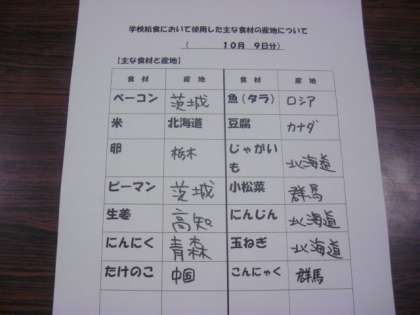 学校給食において使用した主な食材の産地について
(　　　10月　9日分)
【主な食材と産地】
食材　産地　食材　産地
ベーコン　茨城　魚(タラ)　ロシア
米　北海道　豆腐　カナダ
卵　栃木　じゃがいも　北海道
ピーマン　茨城　小松菜　群馬
生姜　高知　にんじん　北海道
にんにく　青森　玉ねぎ　北海道
たけのこ　中国　こんにゃく　群馬